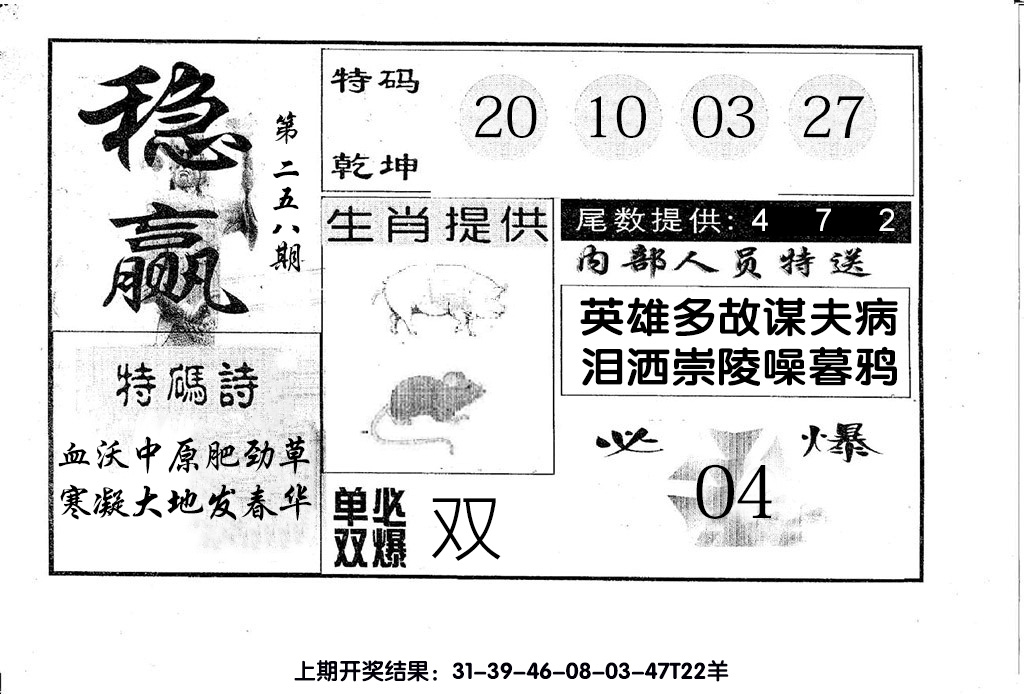 稳赢
第二五八期
特码
乾坤
20 10 03 27
生肖提供
尾数提供: 4 7 2
内部人员特送
英雄多故谋夫病
泪洒崇陵噪暮鸦
特碼詩
血沃中原肥劲草
寒凝大地发春华
单双必爆
双
必爆
04
上期开奖结果：31-39-46-08-03-47T22羊